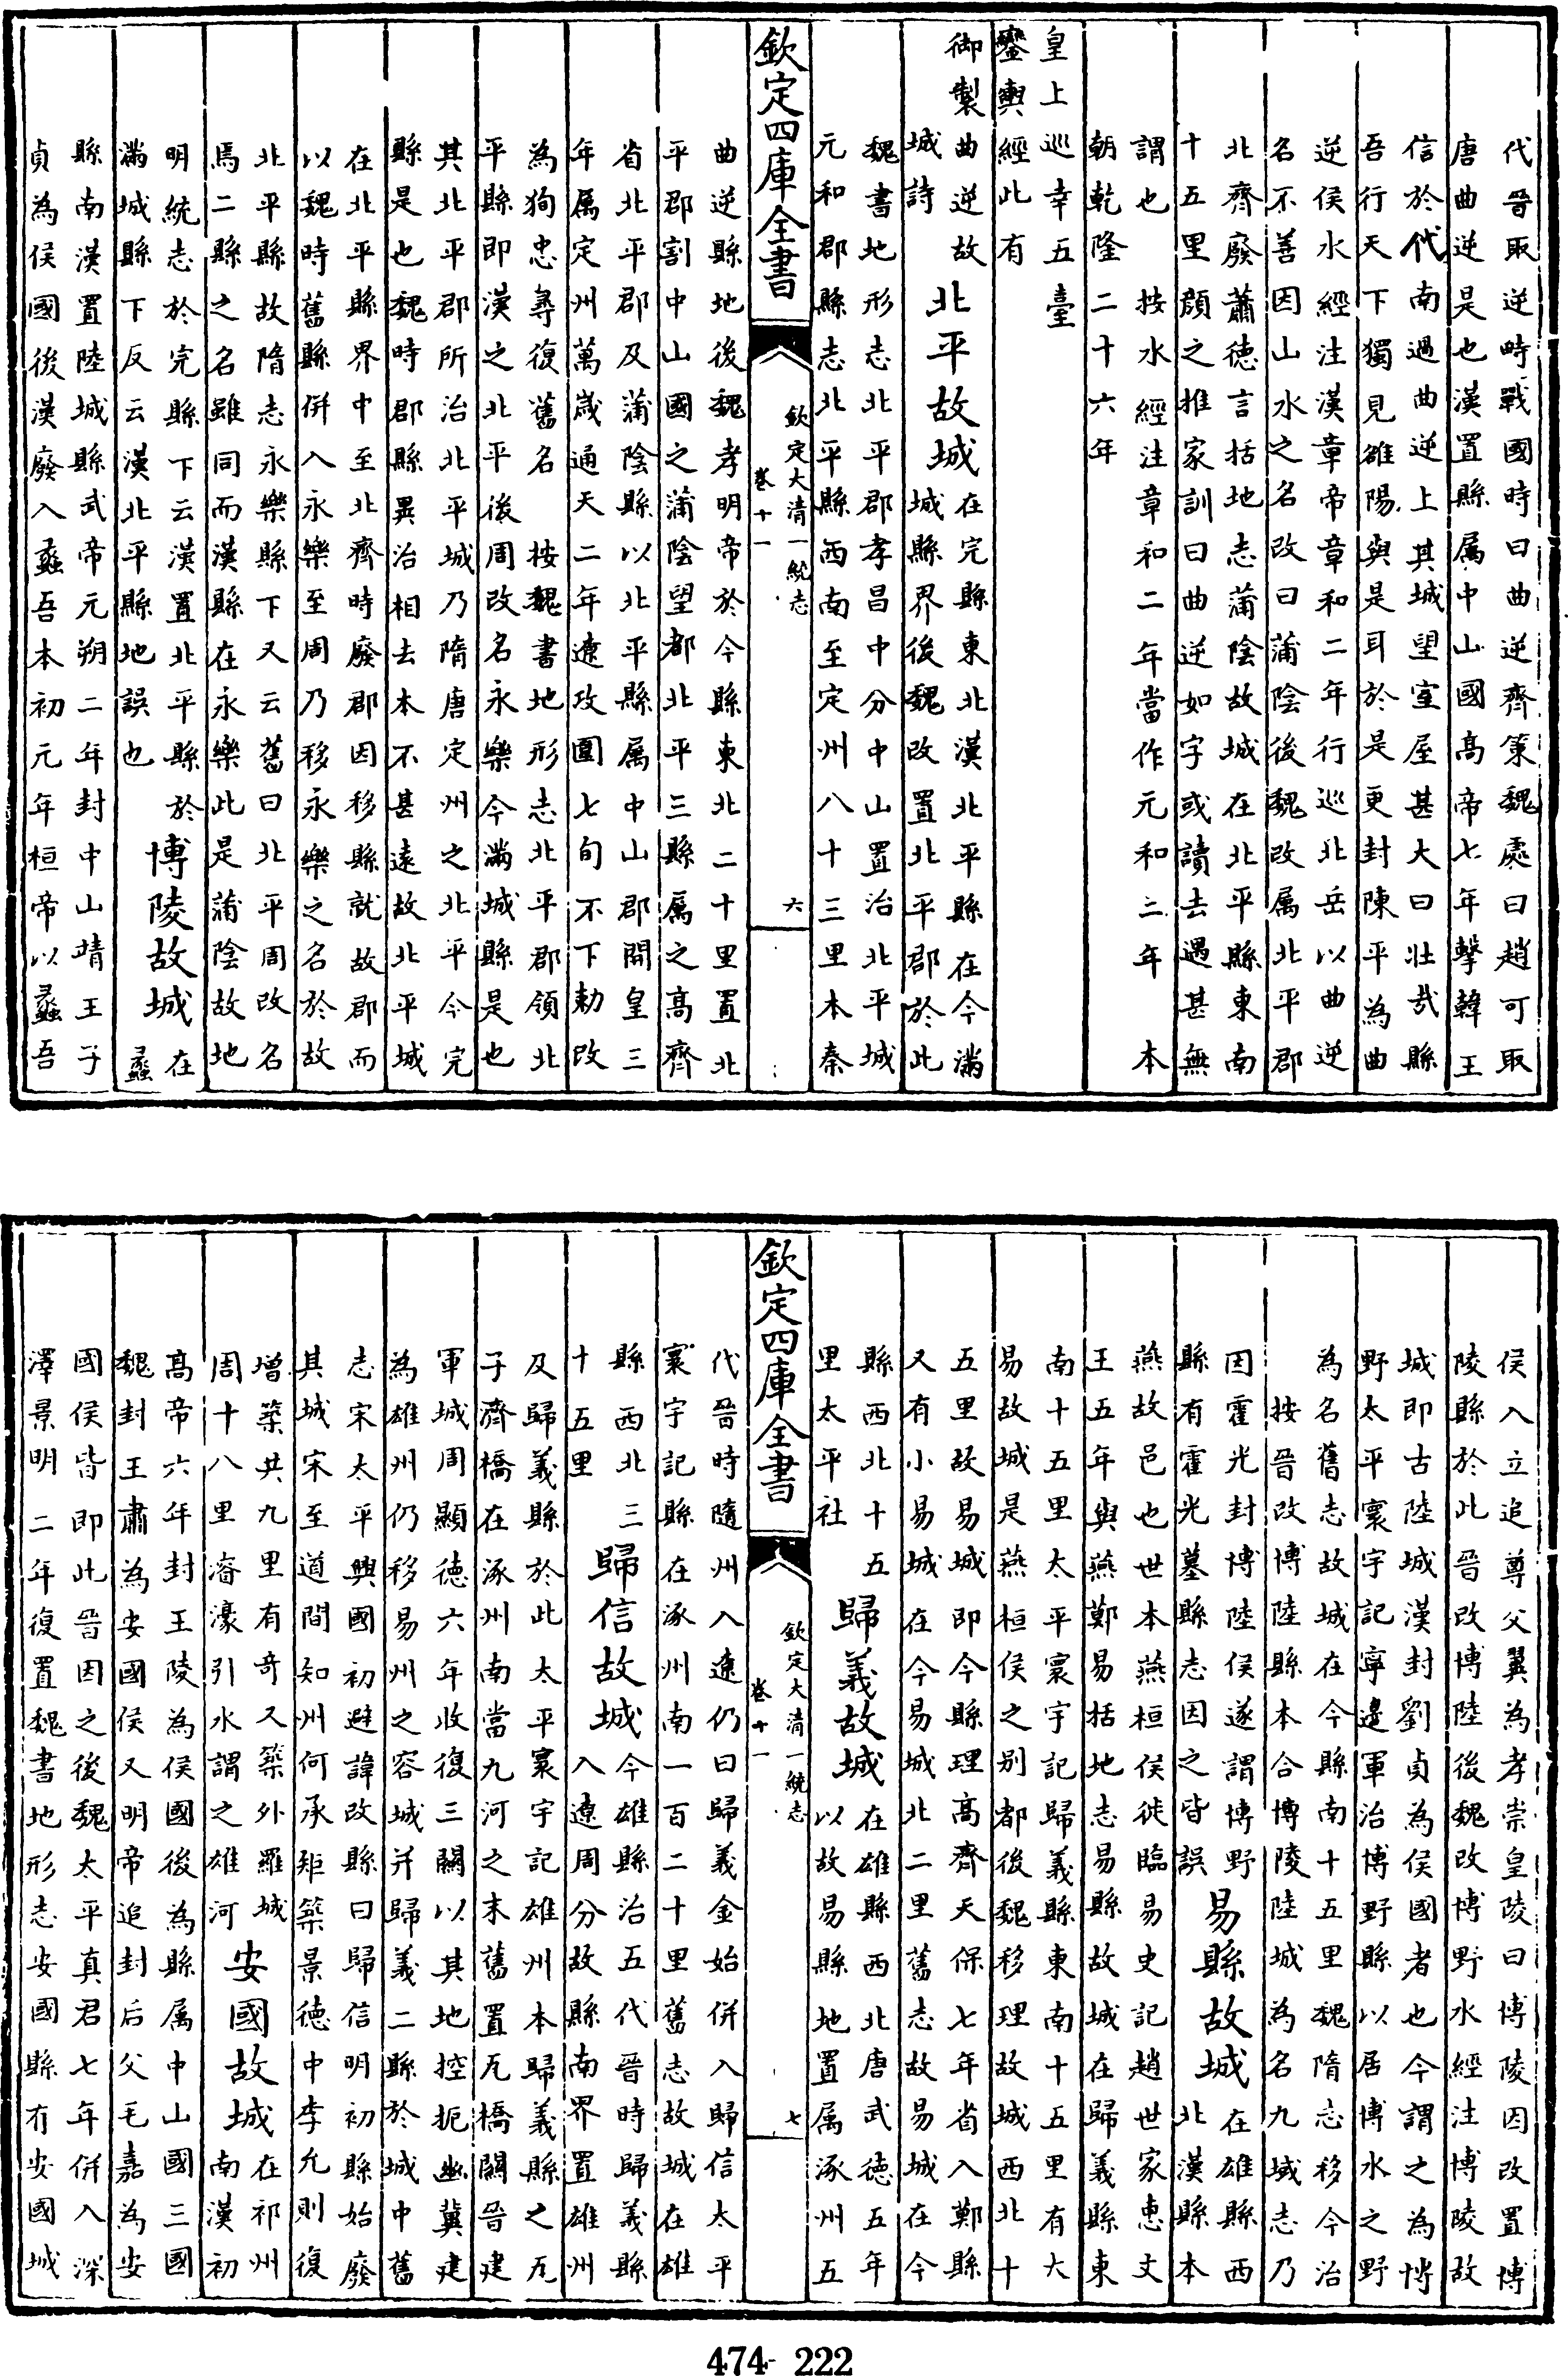 代晉取逆畤戰國時曰曲逆齊策魏處曰趙可取
唐曲逆是也漢置縣屬中山國髙帝七年擊韓王
信於代南過曲逆上其城望室屋甚大曰壯哉縣
吾行天下獨見雒陽與是耳於是更封陳平為曲
逆侯水經注漢章帝章和二年行巡北岳以曲逆
名不善因山水之名改曰蒲陰後魏改属北平郡
北齊廢蕭德言括地志蒲陰故城在北平縣東南
十五里顔之推家訓曰曲逆如字或讀去遇甚無
謂也 按水經注章和二年當作元和三年 本
朝乾隆二十六年
皇上巡幸五臺
鑾輿經此有
御製曲逆故
城詩
北平故城
在完縣東北漢北平縣在今滿
城縣界後魏改置北平郡於此
魏書地形志北平郡孝昌中分中山置治北平城
元和郡縣志北平縣西南至定州八十三里本秦
欽定四庫全書
欽定大清一統志
卷十一
六
曲逆縣地後魏孝明帝於今縣東北二十里置北
平郡割中山國之蒲陰望都北平三縣屬之髙齊
省北平郡及蒲陰縣以北平縣属中山郡開皇三
年属定州萬歲通天二年遼攻圍七旬不下勅改
為狥忠尋復舊名 按魏書地形志北平郡領北
平縣即漢之北平後周改名永樂今滿城縣是也
其北平郡所治北平城乃隋唐定州之北平今完
縣是也魏時郡縣異治相去本不甚遠故北平城
在北平縣界中至北齊時廢郡因移縣就故郡而
以魏時舊縣併入永樂至周乃移永樂之名於故
北平縣故隋志永樂縣下又云舊曰北平周改名
焉二縣之名雖同而漢縣在永樂此是蒲陰故地
明統志於完縣下云漢置北平縣於
滿城縣下反云漢北平縣地誤也
博陵故城
在
蠡
縣南漢置陸城縣武帝元朔二年封中山靖王子
貞為侯國後漢廢入蠡吾本初元年桓帝以蠡吾
侯入立追尊父翼為孝崇皇陵曰博陵因改置博
陵縣於此晉改博陸後魏改博野水經注博陵故
城即古陸城漢封劉貞為侯國者也今謂之為博
野太平寰宇記寧邊軍治博野縣以居博水之野
為名舊志故城在今縣南十五里魏隋志移今治
按晉改博陸縣本合博陵陸城為名九域志乃
因霍光封博陸侯遂謂博野
縣有霍光墓縣志因之皆誤
易縣故城
在雄縣西
北漢縣本
燕故邑也世本燕桓侯徙臨易史記趙世家惠文
王五年與燕鄭易括地志易縣故城在歸義縣東
南十五里太平寰宇記歸義縣東南十五里有大
易故城是燕桓侯之别都後魏移理故城西北十
五里故易城即今縣理髙齊天保七年省入鄭縣
又有小易城在今易城北二里舊志故易城在今
縣西北十五
里太平社
歸義故城
在雄縣西北唐武德五年
以故易縣地置属涿州五
欽定四庫全書
欽定大清一統志
卷十一
七
代晉時隨州入遼仍曰歸義金始併入歸信太平
寰宇記縣在涿州南一百二十里舊志故城在雄
縣西北三
十五里
歸信故城
今雄縣治五代晉時歸義縣
入遼周分故縣南界置雄州
及歸義縣於此太平寰宇記雄州本歸義縣之瓦
子濟橋在涿州南當九河之末舊置瓦橋關晉建
軍城周顯德六年收復三關以其地控扼幽冀建
為雄州仍移易州之容城并歸義二縣於城中舊
志宋太平興國初避諱改縣曰歸信明初縣始廢
其城宋至道間知州何承矩築景德中李允則復
增築共九里有奇又築外羅城
周十八里濬濠引水謂之雄河
安國故城
在祁州
南漢初
髙帝六年封王陵為侯國後為縣属中山國三國
魏封王肅為安國侯又明帝追封后父毛嘉為安
國侯皆即此晉因之後魏太平真君七年併入深
澤景明二年復置魏書地形志安國縣有安國城
474- 222